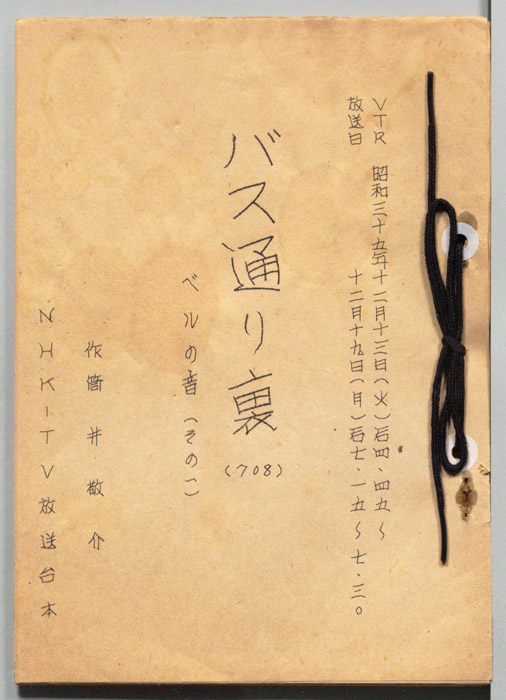 VTR 昭和三十五年十二月十三日(火)后四・四五〜
放送日 十二月十九日(月)后七・一五〜七・三〇
バス通り裏 (708)
ベルの音 (その一)
作 筒井敬介
NHK-TV放送台本